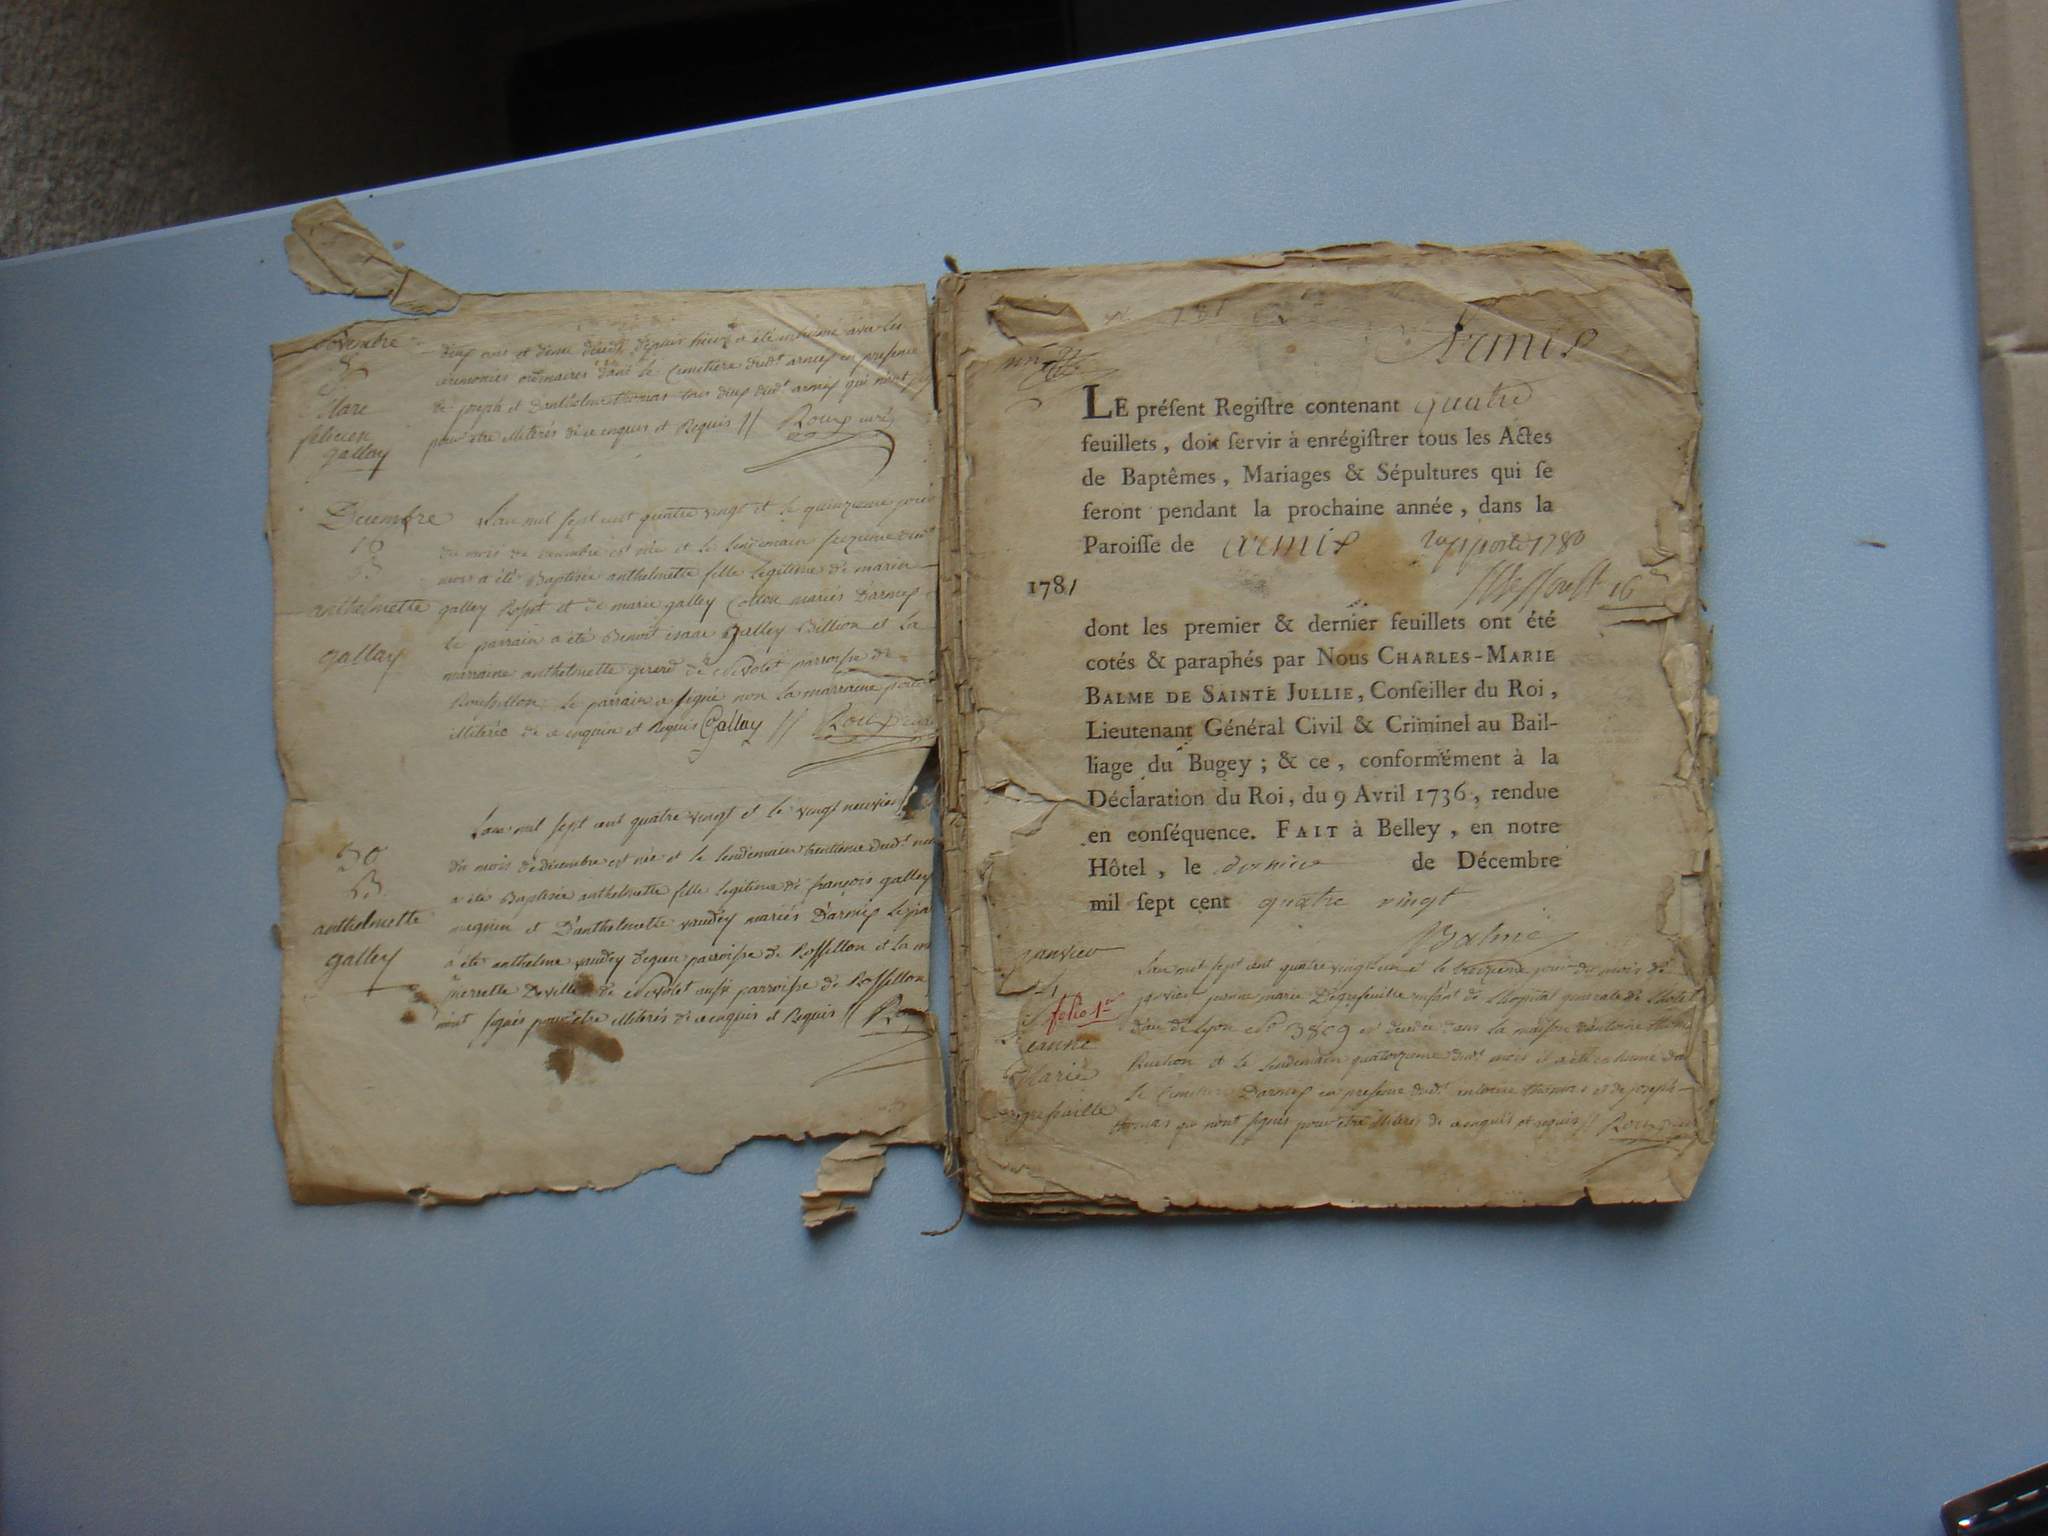 Novembre
8
S
Marc
felicien
gallay
deux ans et demi décédé depuis hier a été inhumé avec les
ceremonies ordinaires dans le Cimetiere dudt armix en presence
de joseph et d'anthelme thomas tous deux dudt armix qui n'ont
pour etre illiterés de ce enquis et Requis // Roux curé
Decembre
16
B
anthelmette
gallay
L'an mil sept cent quatre vingt et le quinzieme jour
du mois de decembre est née et le lendemain seizieme dudt
mois a été Baptisée anthelmette fille legitime de marin
galley et de marie galley Collon mariés D'armix
le parrain a été Benoit isaac galley Billion et la
marraine anthelmette girerd de parroisse de
Roussillon le parrain a signé non la marraine pour
illiterée de ce enquise et Requise Gallay // Roux curé
30
B
anthelmette
galley
L'an mil sept cent quatre vingt et le vingt neuvieme
du mois de decembre est née et le lendemain trentieme dudt
a été Baptisée anthelmette fille legitime de françois galley
et D'anthelmette vaudey mariés D'armix le
a été anthelme vaudey parroisse de Rossillon et la
pierrette Deville de aussi parroisse de Rossillon
n'ont signés pour etre illiterés de ce enquis et Requis // Roux
1781
Armix
LE préſent Regiſtre contenant quatre
feuillets, doit ſervir à enrégiſtrer tous les Actes
de Baptêmes, Mariages & Sépultures qui ſe
feront pendant la prochaine année, dans la
Paroiſſe de armix rapporté 1780
1781
dont les premier & dernier feuillets ont été
cotés & paraphés par Nous CHARLES-MARIE
BALME DE SAINTE JULLIE, Conſeiller du Roi,
Lieutenant Général Civil & Criminel au Bail-
liage du Bugey; & ce, conformément à la
Déclaration du Roi, du 9 Avril 1736, rendue
en conſéquence. FAIT à Belley, en notre
Hôtel, le dernier de Décembre
mil ſept cent quatre vingt
Balme
janvier
14
S
folio 1er
Jeanne
Marie
Degrefeuille
L'an mil sept cent quatre vingt un et le treizieme jour du mois de
janvier jeanne marie Degrefeuille enfant de l'hopital generale de l'hotel
dieu de Lyon No 3809 est decedée dans la maison d'antoine thomas
Ruchon et le lendemain quatorzieme dudt mois il a été inhumé dans
le Cimetiere D'armix en presence dudt antoine thomas et de joseph
thomas qui n'ont signés pour etre illiterés de ce enquis et requis // Roux curé